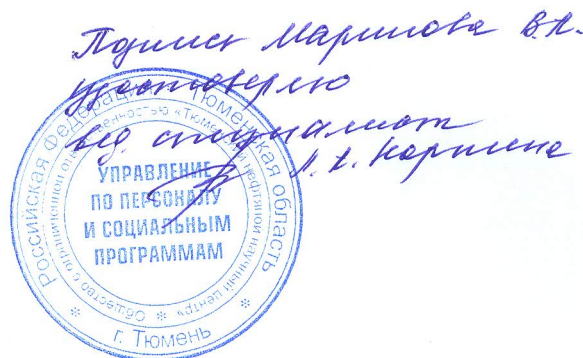 Подпись Маринова В.А.
удостоверяю
вед. специалист
Л.А. Каркина
Российская Федерация Тюменская область
Общество с ограниченной ответственностью «Тюменский нефтяной научный центр»
УПРАВЛЕНИЕ
ПО ПЕРСОНАЛУ
И СОЦИАЛЬНЫМ
ПРОГРАММАМ
г. Тюмень